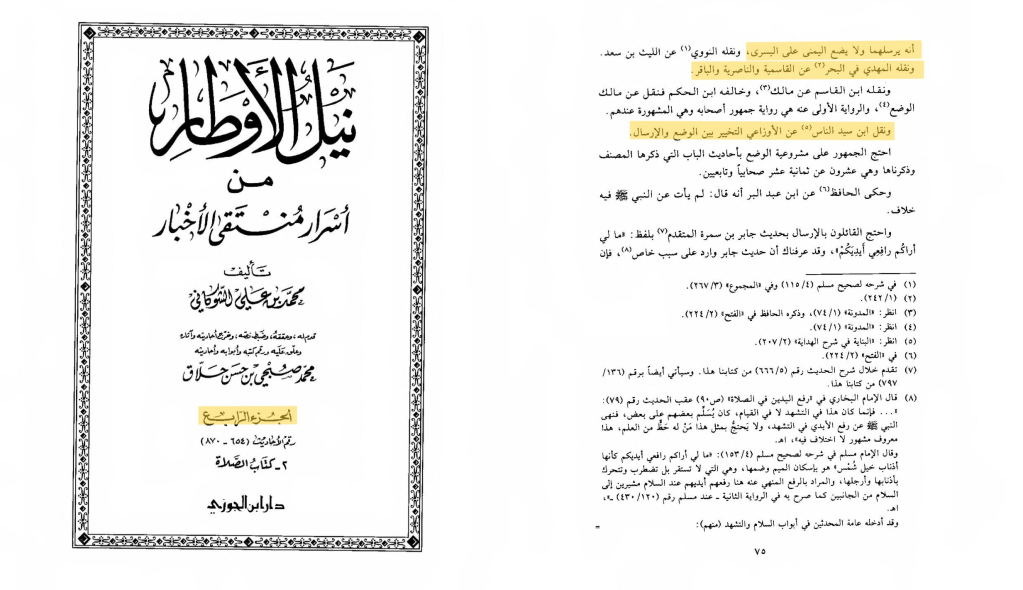 نَيْلُ الأَوْطَارِ
مِن
أَسْرَارِ مُنْتَقَى الأَخْبَارِ
تَأليفُ
مُحَمَّد بن عَلي الشَّوكَاني
قدم له، وحققه، وضبط نصه، وخرج أحاديثه وآثاره
وعلق عليه ورقم كتبه وأبوابه وأحاديثه
محمد صبحي بن حسن حلاق
الجزء الرابع
رقم الأحاديث (٦٥٤ - ٨٧٠)
٢ - كتاب الصلاة
دار ابن الجوزي
أنه يرسلهما ولا يضع اليمنى على اليسرى، ونقله النووي(١) عن الليث بن سعد.
ونقله المهدي في البحر(٢) عن القاسمية والناصرية والباقر.
ونقله ابن القاسم عن مالك(٣)، وخالفه ابن الحكم فنقل عن مالك
الوضع(٤)، والرواية الأولى عنه هي رواية جمهور أصحابه وهي المشهورة عندهم.
ونقل ابن سيد الناس(٥) عن الأوزاعي التخيير بين الوضع والإرسال.
احتج الجمهور على مشروعية الوضع بأحاديث الباب التي ذكرها المصنف
وذكرناها وهي عشرون عن ثمانية عشر صحابياً وتابعيين.
وحكى الحافظ(٦) عن ابن عبد البر أنه قال: لم يأت عن النبي ﷺ فيه
خلاف.
واحتج القائلون بالإرسال بحديث جابر بن سمرة المتقدم(٧) بلفظ: «ما لي
أراكُم رافِعِي أَيدِيَكُمْ»، وقد عرفناك أن حديث جابر وارد على سبب خاص(٨)، فإن
(١) في شرحه لصحيح مسلم (٤/ ١١٥) وفي «المجموع» (٣/ ٢٦٧).
(٢) (١/ ٢٤٢).
(٣) انظر: «المدونة» (١/ ٧٤)، وذكره الحافظ في «الفتح» (٢/ ٢٢٤).
(٤) انظر: «المدونة» (١/ ٧٤).
(٥) انظر: «البناية في شرح الهداية» (٢/ ٢٠٧).
(٦) في «الفتح» (٢/ ٢٢٤).
(٧) تقدم خلال شرح الحديث رقم (٥/ ٦٦٦) من كتابنا هذا. وسيأتي أيضاً برقم (١٣٦/
٧٩٧) من كتابنا هذا.
(٨) قال الإمام البخاري في «رفع اليدين في الصلاة» (ص٩٠) عقب الحديث رقم (٧٩):
«... فإنما كان هذا في التشهد لا في القيام، كان يُسَلِّم بعضهم على بعض، فنهى
النبي ﷺ عن رفع الأيدي في التشهد، ولا يَحتجُّ بمثل هذا مَنْ له حَظٌّ من العلم، هذا
معروف مشهور لا اختلاف فيه»، اهـ.
وقال الإمام مسلم في شرحه لصحيح مسلم (٤/ ١٥٣): «ما لي أراكم رافعي أيديكم كأنها
أذناب خيل شُمُس» هو بإسكان الميم وضمها، وهي التي لا تستقر بل تضطرب وتتحرك
بأذنابها وأرجلها، والمراد بالرفع المنهي عنه هنا رفعهم أيديهم عند السلام مشيرين إلى
السلام من الجانبين كما صرح به في الرواية الثانية ـ عند مسلم رقم (١٢٠/ ٤٣٠) ـ»،
اهـ.
وقد أدخله عامة المحدثين في أبواب السلام والتشهد (منهم): =
٧٥